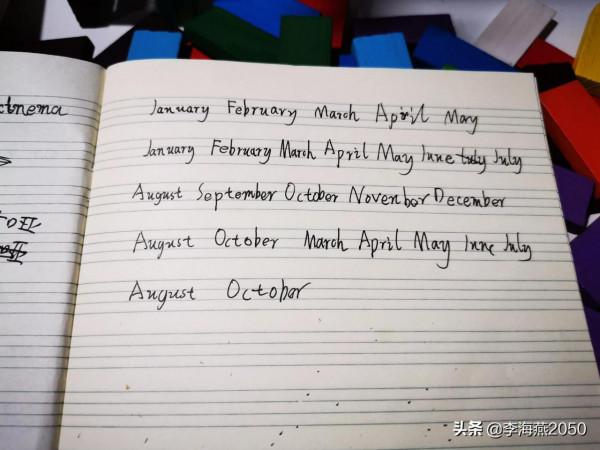 January February March April May
January February March April May June July July
August September October Novenbor December
August October March April May June July
August October
头条 @李海燕2050